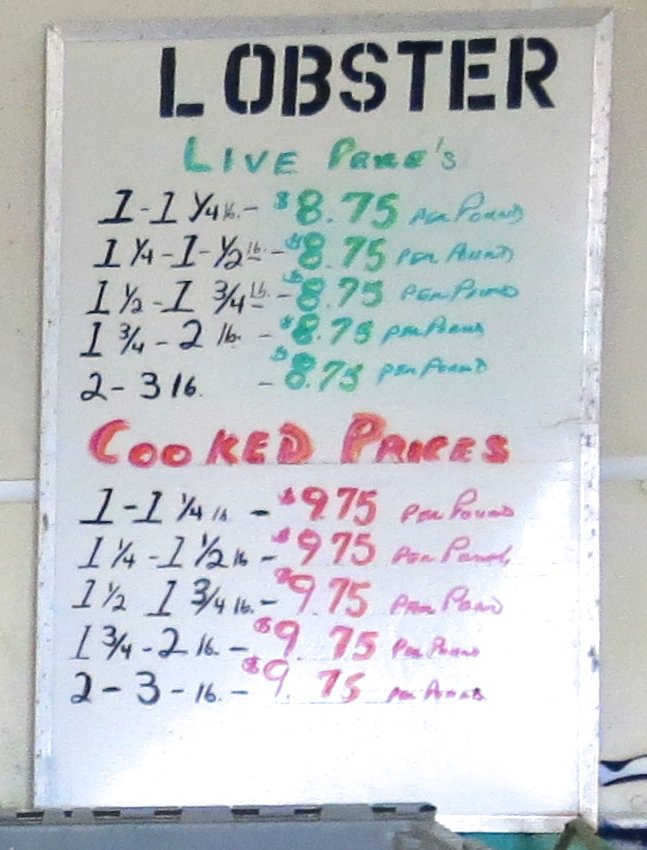 LOBSTER
LIVE PRICE'S
1-1 1/4 lb. - $8.75 PER POUND
1 1/4 - 1 - 1/2 lb. - $8.75 PER POUND
1 1/2 - 1 3/4 lb. - $8.75 PER POUND
1 3/4 - 2 lb. - $8.75 PER POUND
2 - 3 lb. - $8.75 PER POUND
COOKED PRICES
1-1 1/4 lb - $9.75 PER POUND
1 1/4 - 1 1/2 lb - $9.75 PER POUND
1 1/2 1 3/4 lb. - $9.75 PER POUND
1 3/4 - 2 lb. - $9.75 PER POUND
2 - 3 - lb. - $9.75 PER POUND